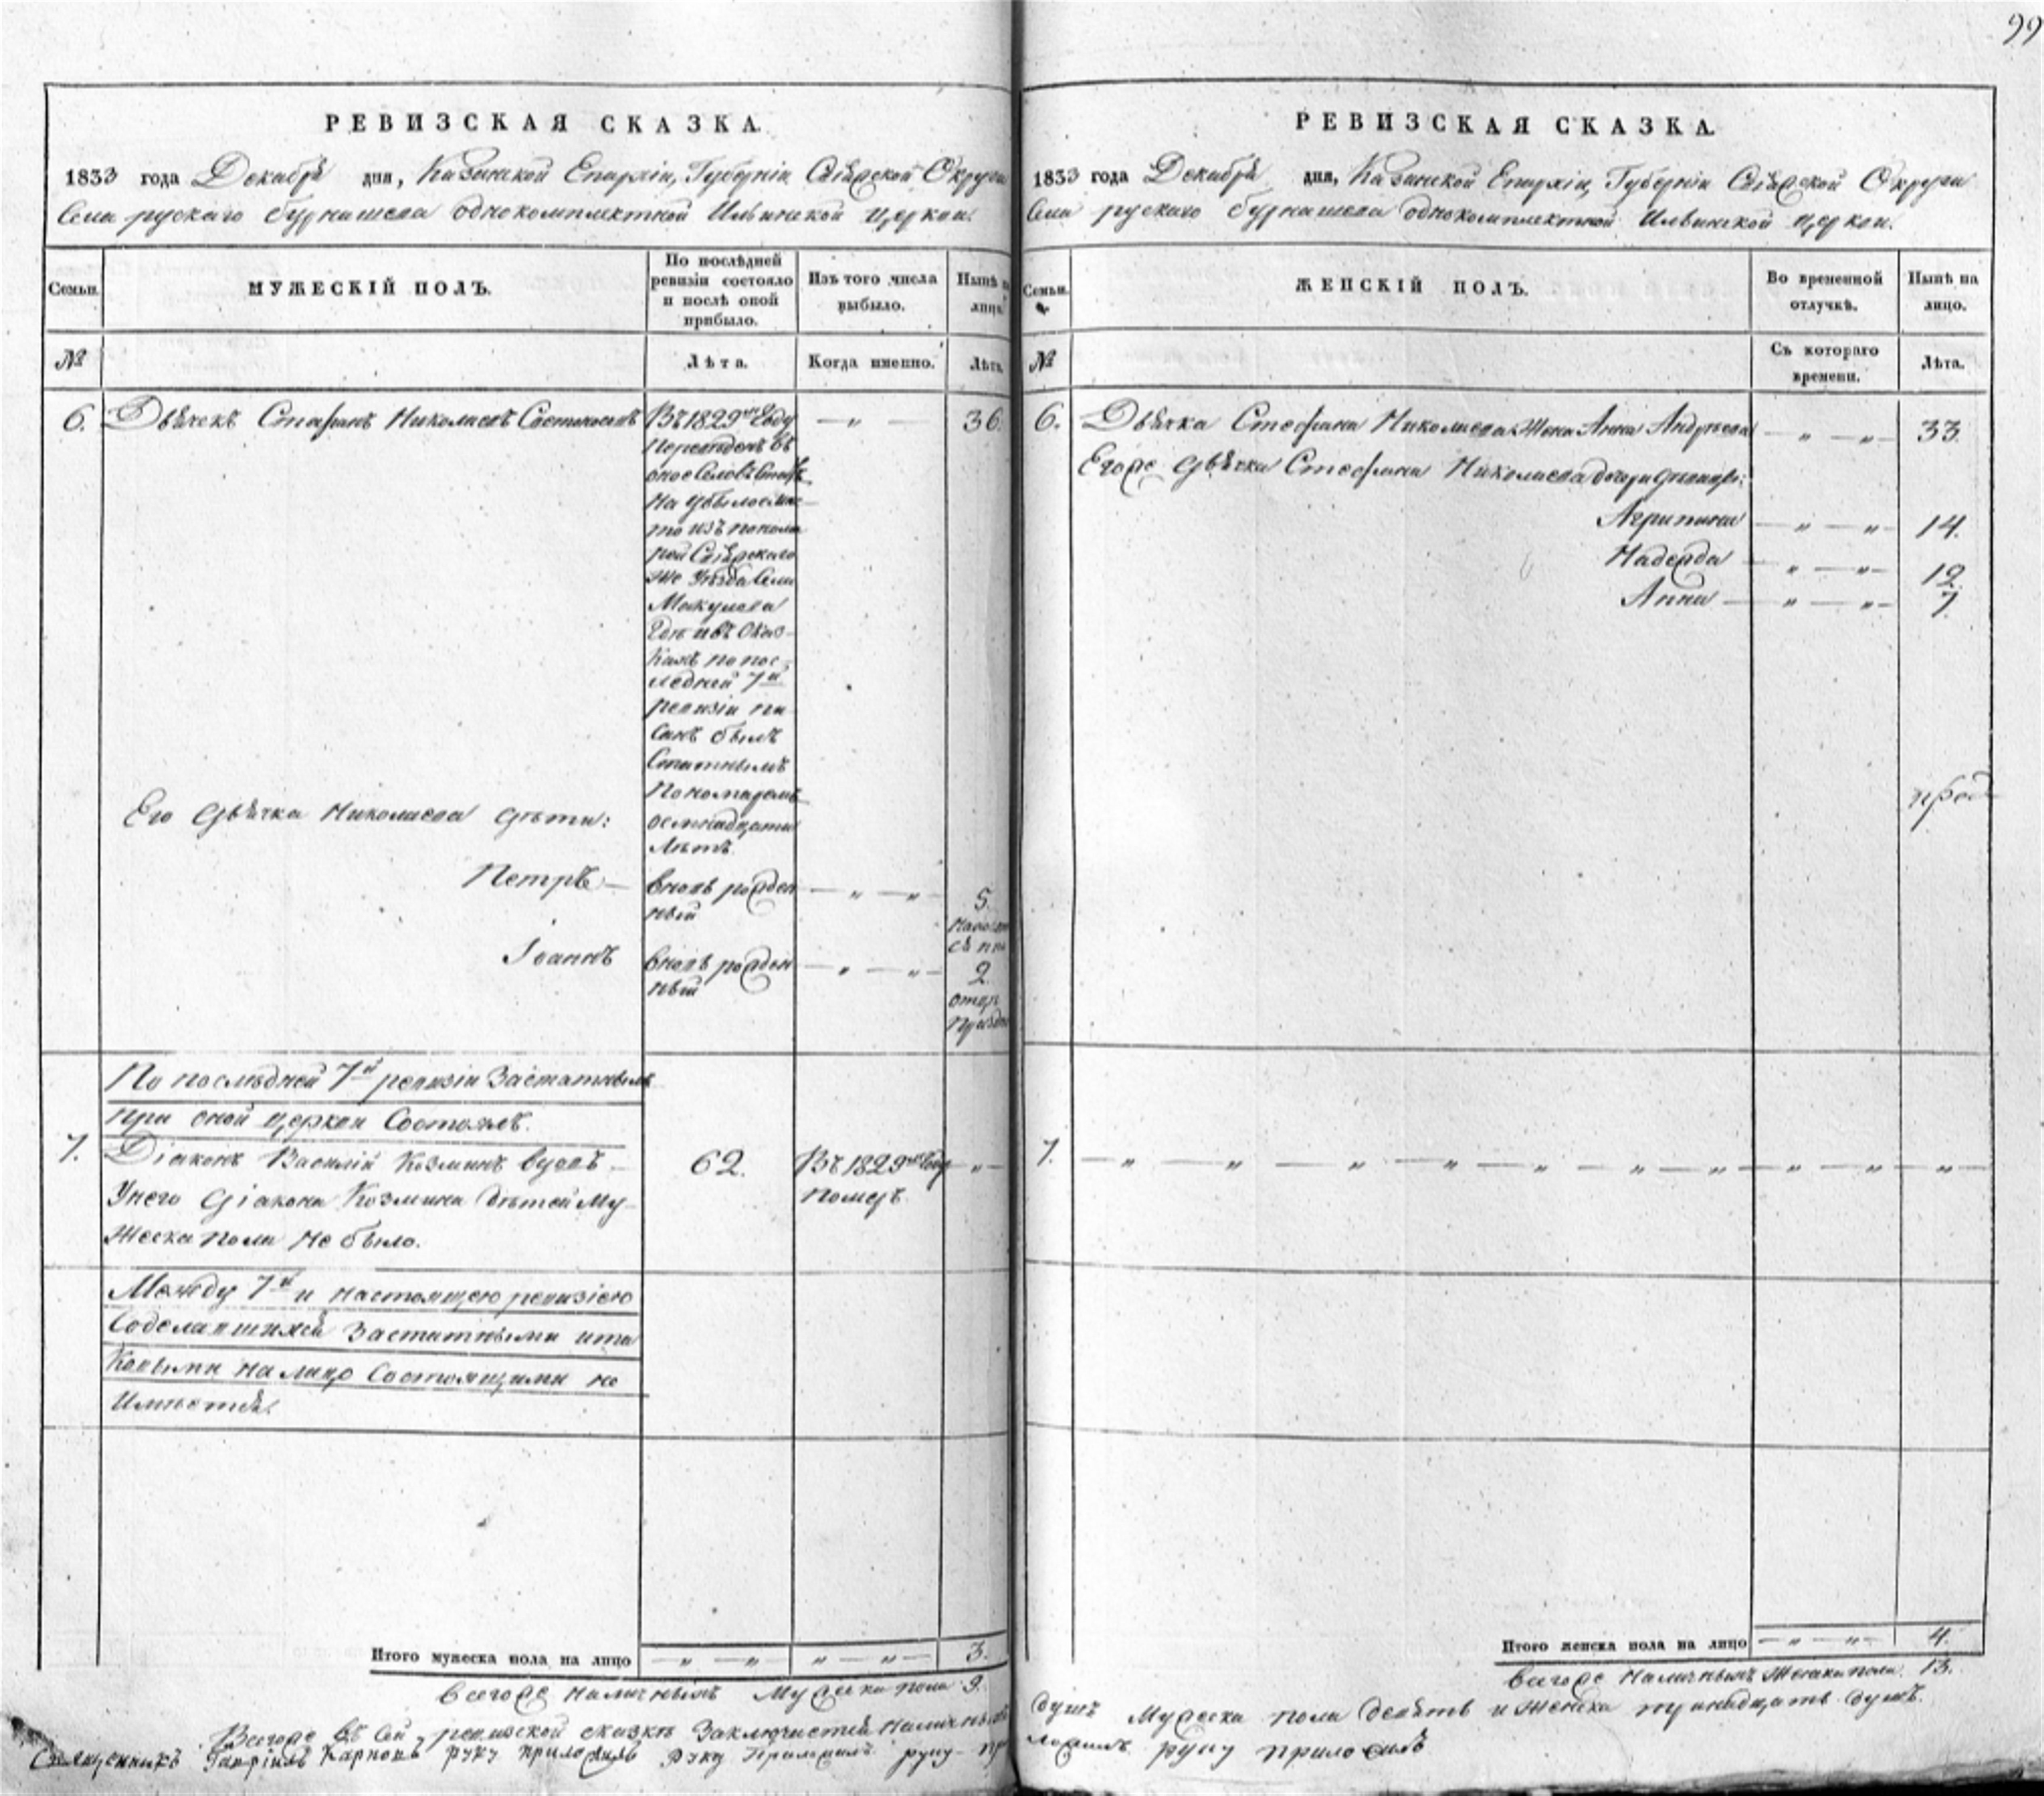 99
РЕВИЗСКАЯ СКАЗКА.
1833 года Декабря дня, Казанской Епархіи, Губерніи Свіяжской Округи
Села рускаго Бурнашева однокомплектной Ильинской церкви.
Семьи.
МУЖЕСКІЙ ПОЛЪ.
По послѣдней
ревизіи состояло
и послѣ оной
прибыло.
Изъ того числа
выбыло.
Нынѣ на
лицо.
№
Лѣта.
Когда именно.
Лѣта.
6. Дьячекъ Стефанъ Николаевъ
Въ 1829мъ Году
Переведенъ въ
оное Село
на убылое мѣс
то изъ понома
рей Свіяжскаго
же Уѣзда Села
Макулова
Гдѣ и въ сказ-
кахъ по пос-
ледней 7й
ревизіи пи
санъ былъ
Статнымъ
Пономаремъ
осмнадцати
Лѣтъ.
— „ — 36.
Его Дьячка Николаева дѣти:
Петръ — вновь рожден
ный — „ — „ — 5.
Іоаннъ вновь рожден
ный — „ — „ — 2.
По послѣдней 7й ревизіи Застатнымъ
при оной церкви Состоялъ.
7. Діаконъ Василій Козминъ вдовъ — 62. Въ 1829мъ Году — „ —
У него діакона Козмина дѣтей му- померъ.
жеска пола не было.
Между 7й и настоящею ревизіею
Соделавшихся Застатными и та
ковыми на лицо Состоящими не
Имѣется.
Итого мужеска пола на лицо — „ — „ — „ — „ — 3.
Всего же наличныхъ Мужеска пола 9.
Всего же въ сей ревизской сказкѣ Заключается Наличныхъ
Священникъ Гавріилъ Карповъ руку приложилъ
РЕВИЗСКАЯ СКАЗКА.
1833 года Декабря дня, Казанской Епархіи, Губерніи Свіяжской Округи
Села рускаго Бурнашева однокомплектной Ильинской церкви.
Семьи.
ЖЕНСКІЙ ПОЛЪ.
Во временной
отлучкѣ.
Нынѣ на
лицо.
№
Съ котораго
времени.
Лѣта.
6. Дьячка Стефана Николаева Жена Анна Андреева — „ — „ — 33.
Его же Дьячка Стефана Николаева дочери
Агрипина — „ — „ — 14.
Надежда — „ — „ — 12.
Анна — „ — „ — 7.
7. — „ — „ — „ — „ — „ — „ — „ — „ — „ —
Итого женска пола на лицо — „ — „ — 4.
Всего же Наличныхъ Женска пола. 13.
душъ Мужеска пола девять и Женска тринадцать душъ.
руку приложилъ